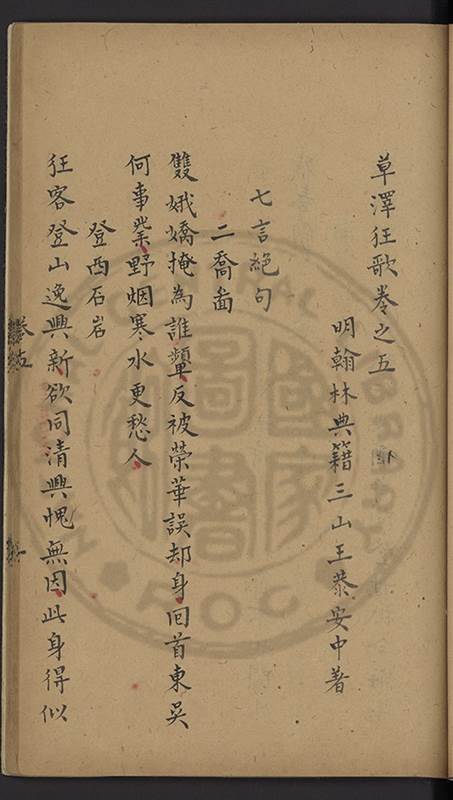 草澤狂歌卷之五
明翰林典籍三山王恭安中著
七言絕句
二喬啚
雙娥嬌掩為誰顰反被榮華誤却身回首東吳
何事業野烟寒水更愁人
登西石岩
狂客登山逸興新欲同清興愧無因此身得似
卷五